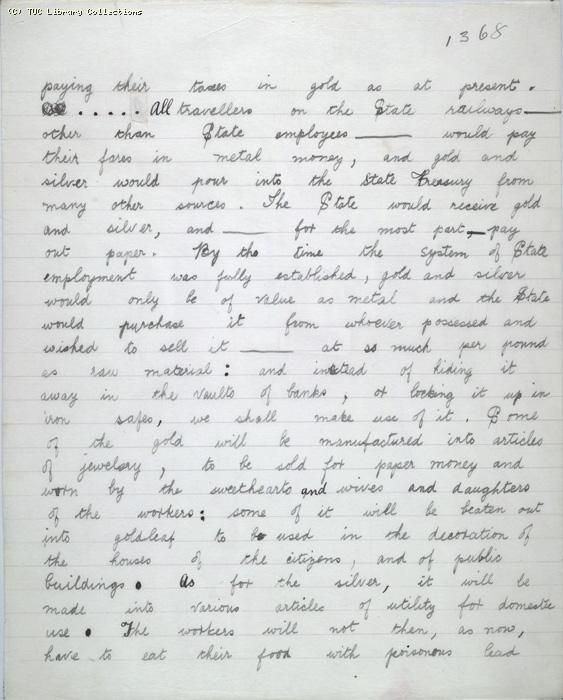 (C) TUC Library Collections
1368
paying their taxes in gold as at present.
..... All travellers on the State railways —
other than State employees — would pay
their fares in metal money, and gold and
silver would pour into the State Treasury from
many other sources. The State would receive gold
and silver, and — for the most part, — pay
out paper. By the time the system of State
employment was fully established, gold and silver
would only be of value as metal and the State
would purchase it from whoever possessed and
wished to sell it — at so much per pound
as raw material: and instead of hiding it
away in the vaults of banks, or locking it up in
iron safes, we shall make use of it. Some
of the gold will be manufactured into articles
of jewelery, to be sold for paper money and
worn by the sweethearts and wives and daughters
of the workers; some of it will be beaten out
into goldleaf to be used in the decoration of
the houses of the citizens, and of public
buildings. As for the silver, it will be
made into various articles of utility for domestic
use. The workers will not then, as now,
have to eat their food with poisonous lead